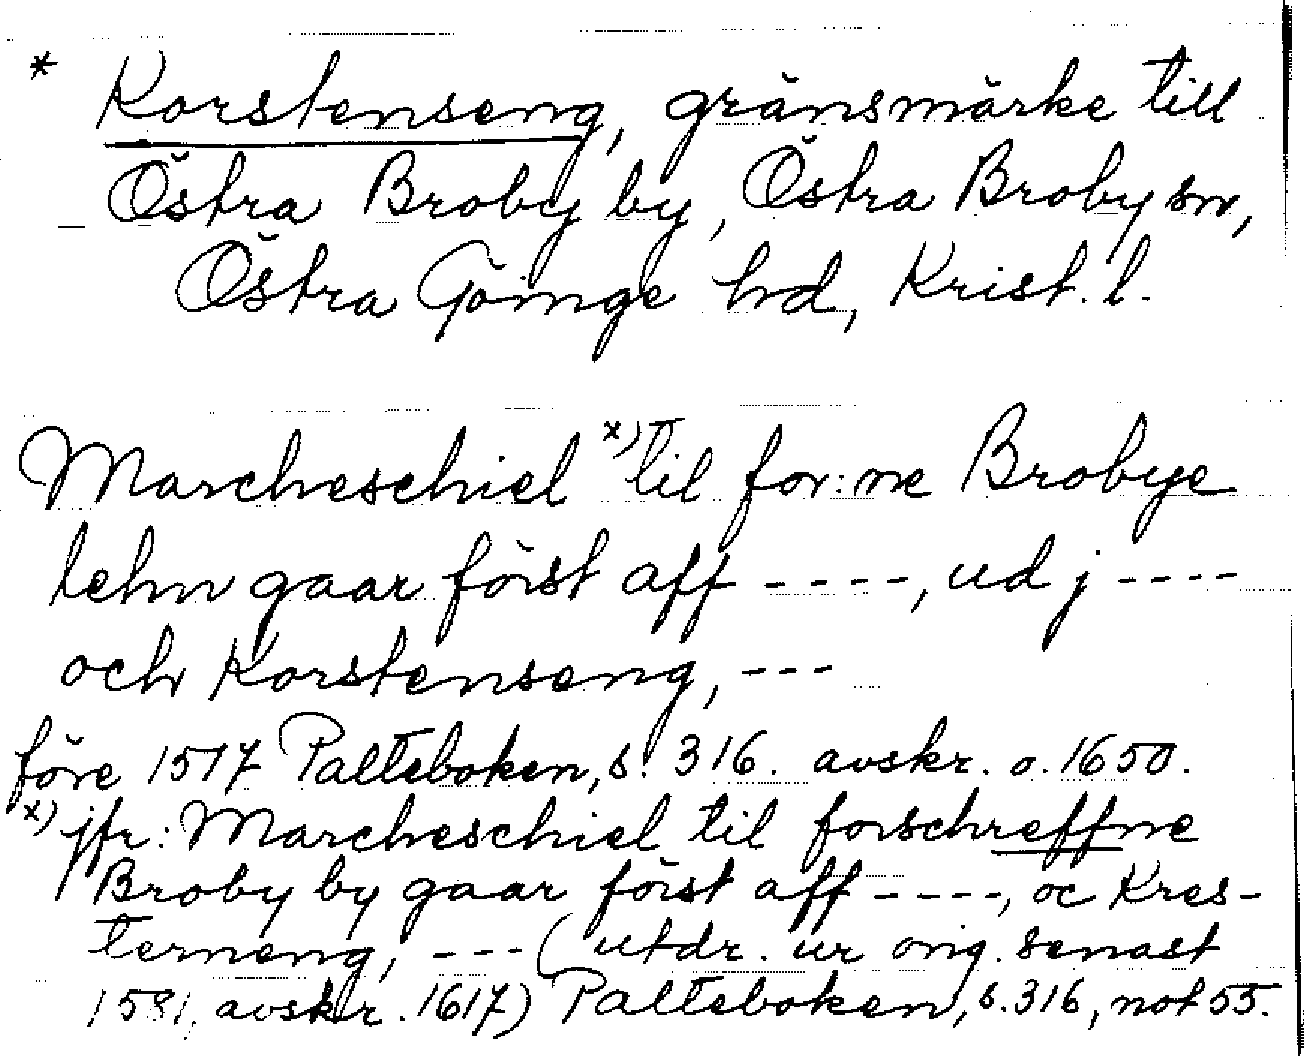 * Korstenseng, gränsmärke till
Östra Broby by, Östra Broby sn,
Östra Göinge hrd, Krist. l.
Marcheschiel x) til for:ne Brobye
lehn gaar först aff ----, ud j ----
och Korstenseng, ---
före 1517 Palteboken, s. 316. avskr. o. 1650.
x) jfr: Marcheschiel til forschreffne
Broby by gaar först aff ----, oc Kres-
terneng, --- (utdr. ur orig. senast
1581, avskr. 1617) Palteboken, s. 316, not 55.